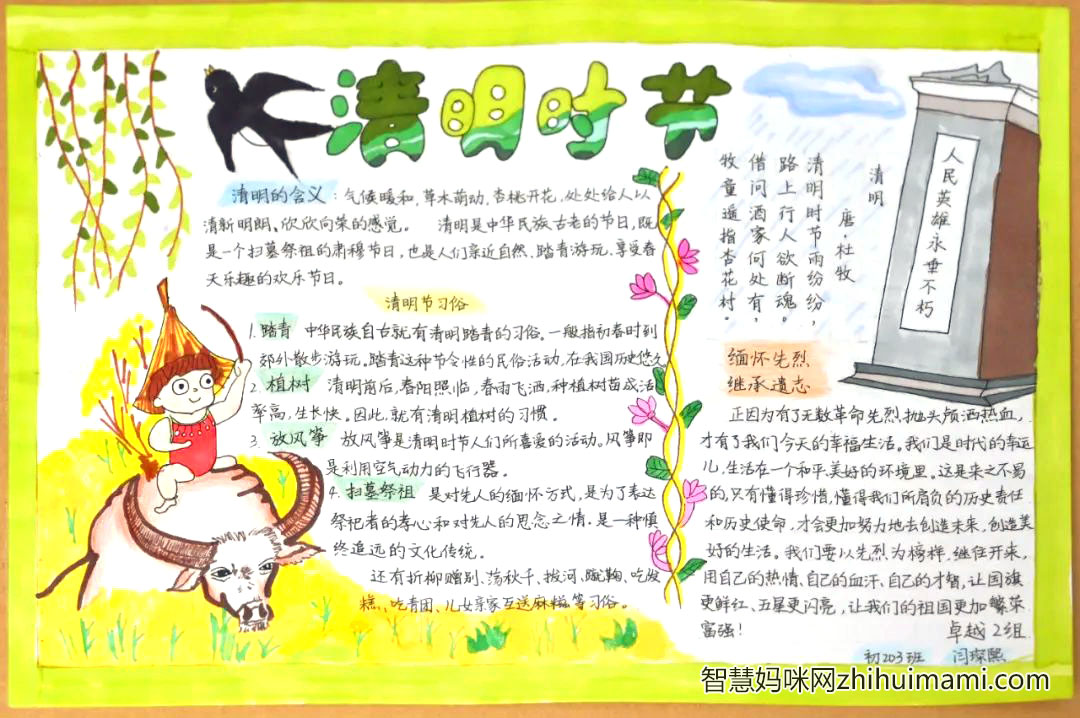 清明时节
清明的含义：气候暖和，草木萌动，杏桃开花，处处给人以
清新明朗、欣欣向荣的感觉。 清明是中华民族古老的节日，既
是一个扫墓祭祖的肃穆节日，也是人们亲近自然、踏青游玩、享受春
天乐趣的欢乐节日。
清明节习俗
1. 踏青 中华民族自古就有清明踏青的习俗。一般指初春时到
郊外散步游玩。踏青这种节令性的民俗活动，在我国历史悠久
2. 植树 清明前后，春阳照临，春雨飞洒，种植树苗成活
率高，生长快。因此，就有清明植树的习惯。
3. 放风筝 放风筝是清明时节人们所喜爱的活动。风筝即
是利用空气动力的飞行器。
4. 扫墓祭祖 是对先人的缅怀方式，是为了表达
祭祀者的孝心和对先人的思念之情。是一种慎
终追远的文化传统。
还有折柳赠别、荡秋千、拔河、蹴鞠、吃发
糕、吃青团、儿女亲家互送麻糍等习俗。
清明
唐·杜牧
清明时节雨纷纷，
路上行人欲断魂。
借问酒家何处有，
牧童遥指杏花村。
人民英雄永垂不朽
缅怀先烈
继承遗志
正因为有了无数革命先烈抛头颅洒热血，
才有了我们今天的幸福生活。我们是时代的幸运
儿，生活在一个和平、美好的环境里。这是来之不易
的，只有懂得珍惜，懂得我们所肩负的历史责任
和历史使命，才会更加努力地去创造未来，创造美
好的生活。我们要以先烈为榜样，继往开来，
用自己的热情、自己的血汗、自己的才智，让国旗
更鲜红、五星更闪亮，让我们的祖国更加繁荣
富强！
卓越2组
初203班 闫璨熙
智慧妈咪网zhihuimami.com